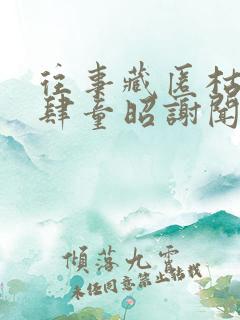 往事藏匿枯
肆童昭謝聞
傾落九霄
未经同意禁止转载